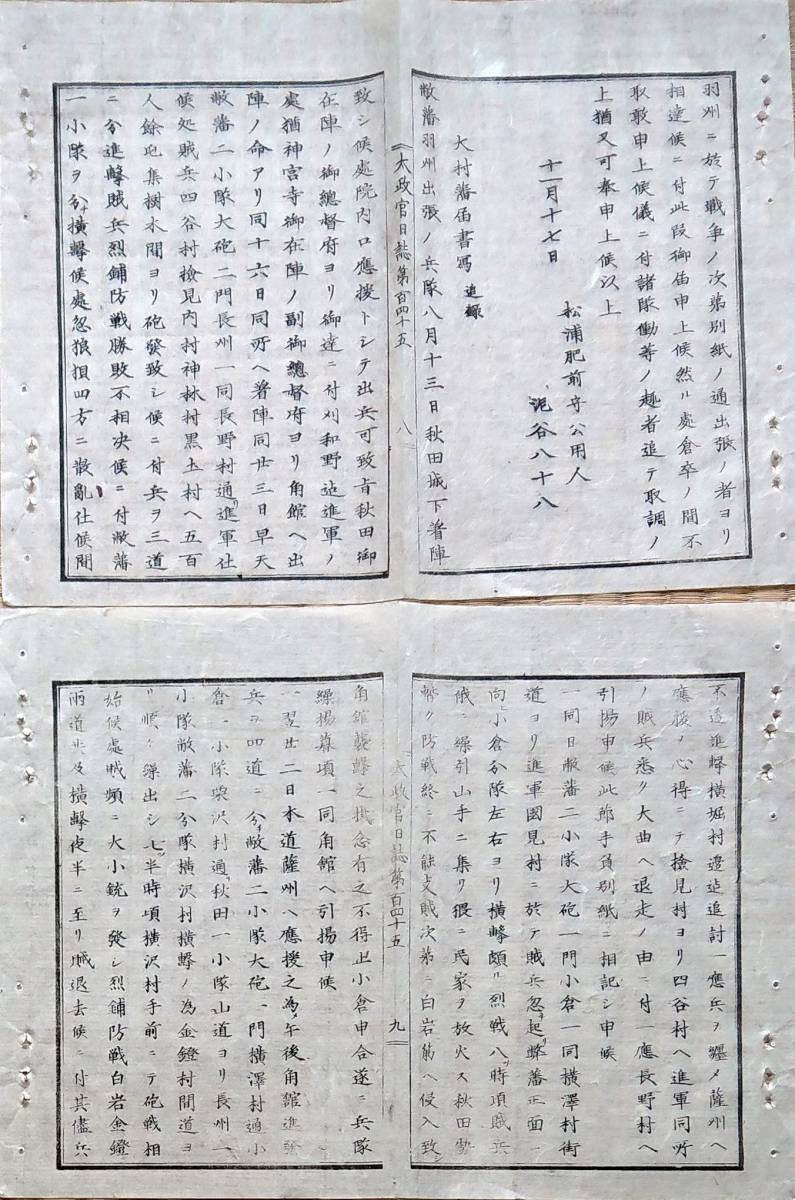 羽州ニ於テ戦争ノ次第別紙ノ通出張ノ者ヨリ
相達候ニ付此段御届申上候然ル處倉卒ノ間不
取敢申上候儀ニ付諸隊働等ノ趣者追テ取調ノ
上猶又可奉申上候以上
十一月十七日
松浦肥前守公用人
泥谷八十八
大村藩届書写 追録
敝藩羽州出張ノ兵隊八月十三日秋田城下着陣
太政官日誌第百四十五
八
致シ候處院内口應援トシテ出兵可致旨秋田御
在陣ノ御總督府ヨリ御達ニ付刈和野迠進軍ノ
處猶神宮寺御在陣ノ副御總督府ヨリ角館ヘ出
陣ノ命アリ同十六日同所ヘ着陣同廿三日早天
敝藩二小隊大砲二門長州一同長野村通リ進軍仕
候処賊兵四谷村検見内村神林村黒土村ヘ五百
人餘屯集樹木間ヨリ砲發致シ候ニ付兵ヲ三道
ニ分進撃賊兵烈鋪防戦勝敗不相决候ニ付敝藩
一小隊ヲ分チ横撃候處忽狼狽四方ニ散亂仕候間
不透進撃横堀村邉迠追討一應兵ヲ纏メ薩州ヘ
應援ノ心得ニテ検見村ヨリ四谷村ヘ進軍同所
ノ賊兵悉ク大曲ヘ退走ノ由ニ付一應長野村ヘ
引揚申候此節手負別紙ニ相記シ申候
一同日敝藩二小隊大砲一門小倉一同横澤村街
道ヨリ進軍國見村ニ於テ賊兵忽チ起リ弊藩正面ニ
向ヒ小倉分隊左右ヨリ横撃頗ル烈戦八ツ時項賊兵
俄ニ繰引山手ニ集リ猥ニ民家ヲ放火ス秋田勢
暫ク防戦終ニ不能支賊次第ニ白岩筋ヘ侵入致シ
太政官日誌第百四十五
九
角館襲撃之掛念有之不得止小倉申合遂ニ兵隊
繰揚暮項一同角館ヘ引揚申候
一翌廿二日本道薩州ヘ應援之為メ午後角館進發
兵ヲ四道ニ分チ敝藩二小隊大砲一門横澤村通小
倉一小隊柴沢村通リ秋田一小隊山道ヨリ長州一
小隊敝藩二分隊横沢村横撃ノ為金鐙村間道ヨ
リ順々繰出シ七ツ半時項横沢村手前ニテ砲戦相
始候處賊頻ニ大小銃ヲ發シ烈鋪防戦白岩金鐙
両道ヨリ及横撃夜半ニ至リ賊退去候ニ付其儘兵